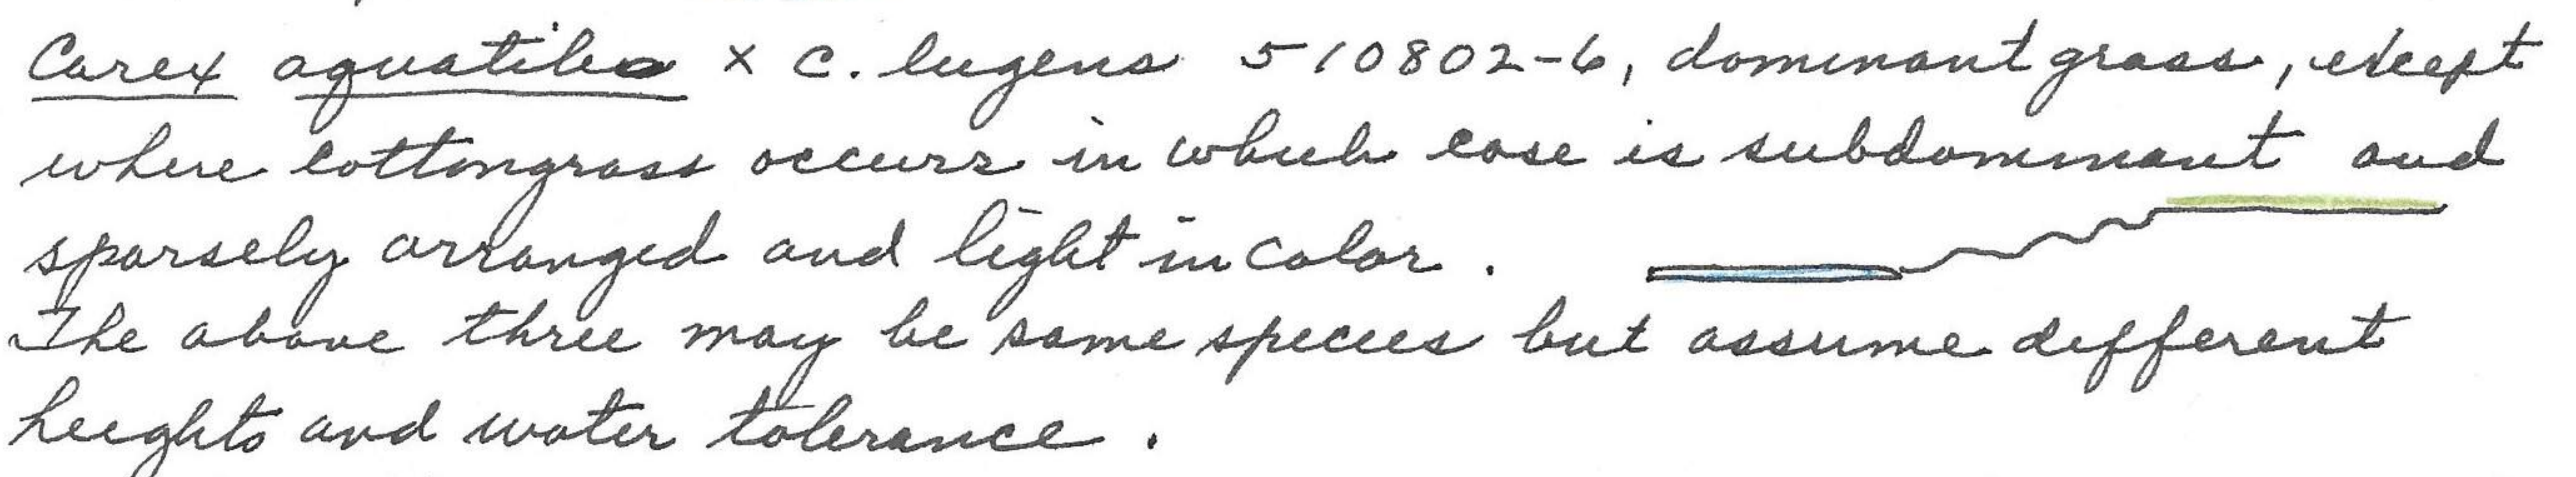 Carex aquatilis x C. lugens 510802-6, dominant grass, except
where cottongrass occurs in which case is subdominant and
sparsely arranged and light in color.
The above three may be same species but assume different
heights and water tolerance.